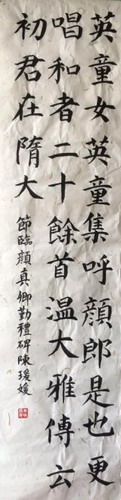 英童女英童集呼顏郎是也更
唱和者二十餘首溫大雅傳云
初君在隋大
節臨顏真卿勤禮碑陳瑗媛